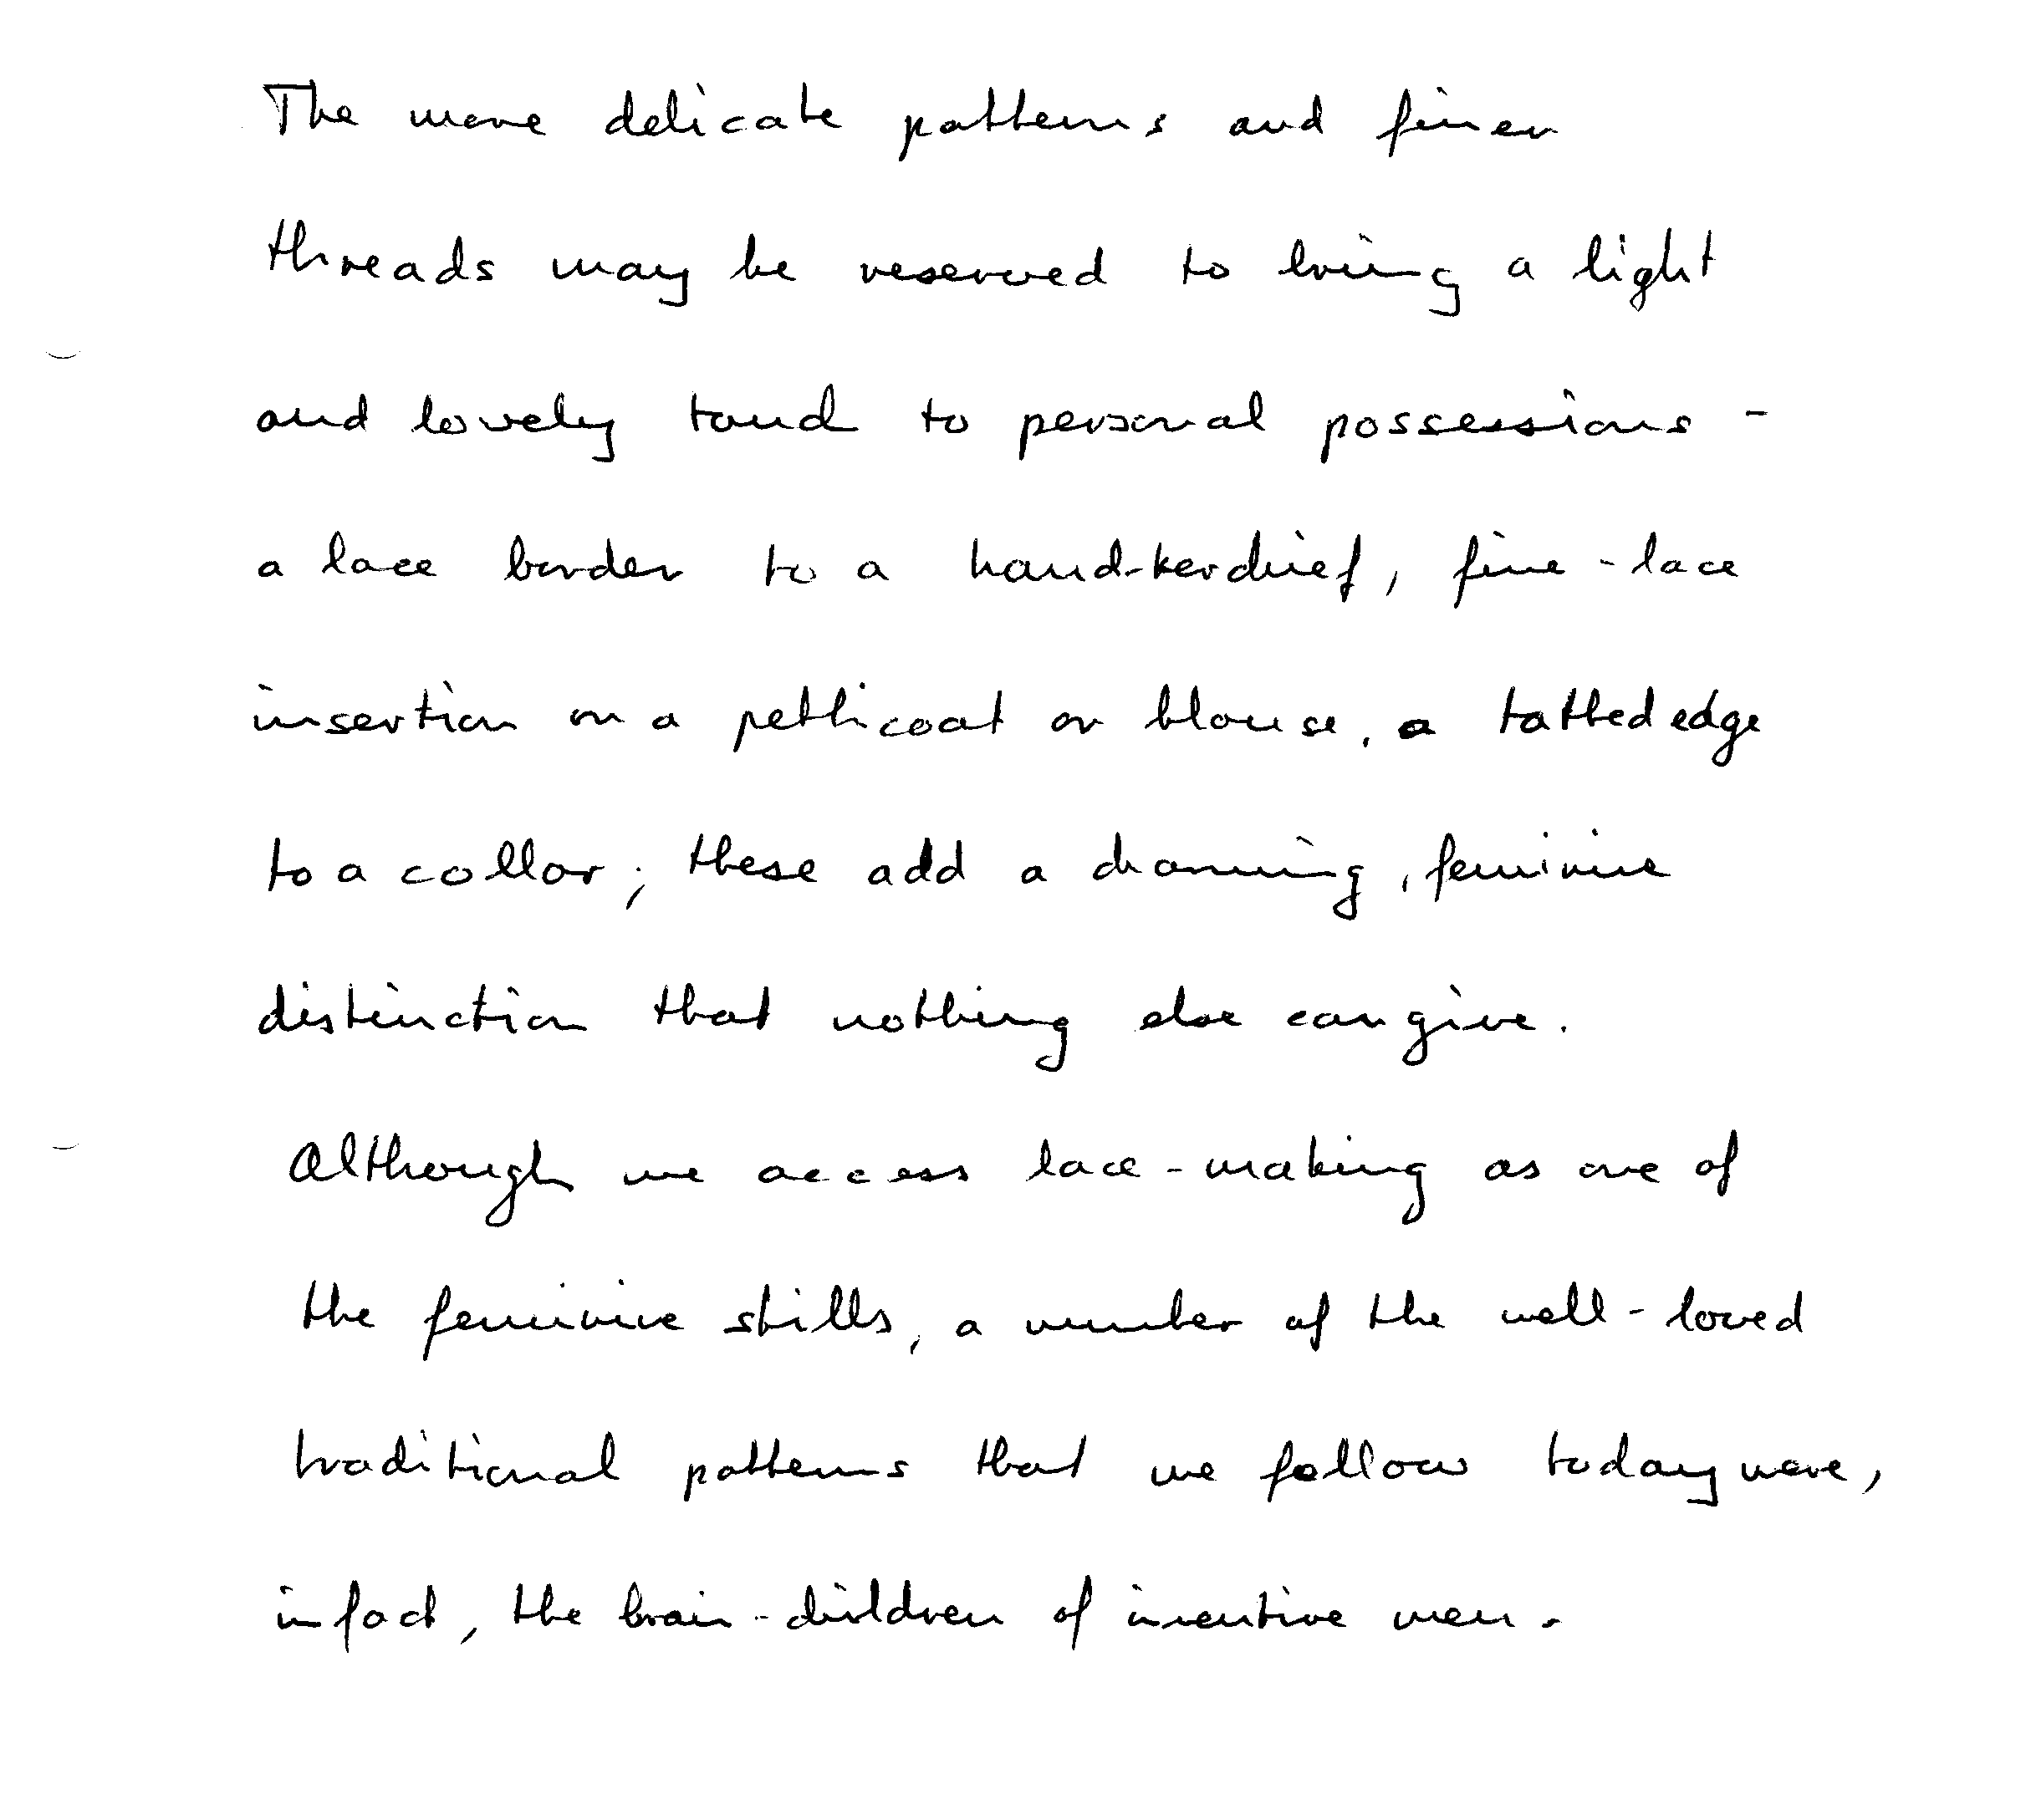 The more delicate patterns and finer
threads may be reserved to bring a light
and lovely toud to personal possessions -
a lace border to a hand-kerchief, fine-lace
insertion on a petticoat or blouse, a tatted edge
to a collar; these add a charming, feminine
distinction that nothing else can give.
Although we access lace-making as one of
the feminine skills, a number of the well-loved
traditional patterns that we follow today were,
in fact, the brain-children of inventive men.